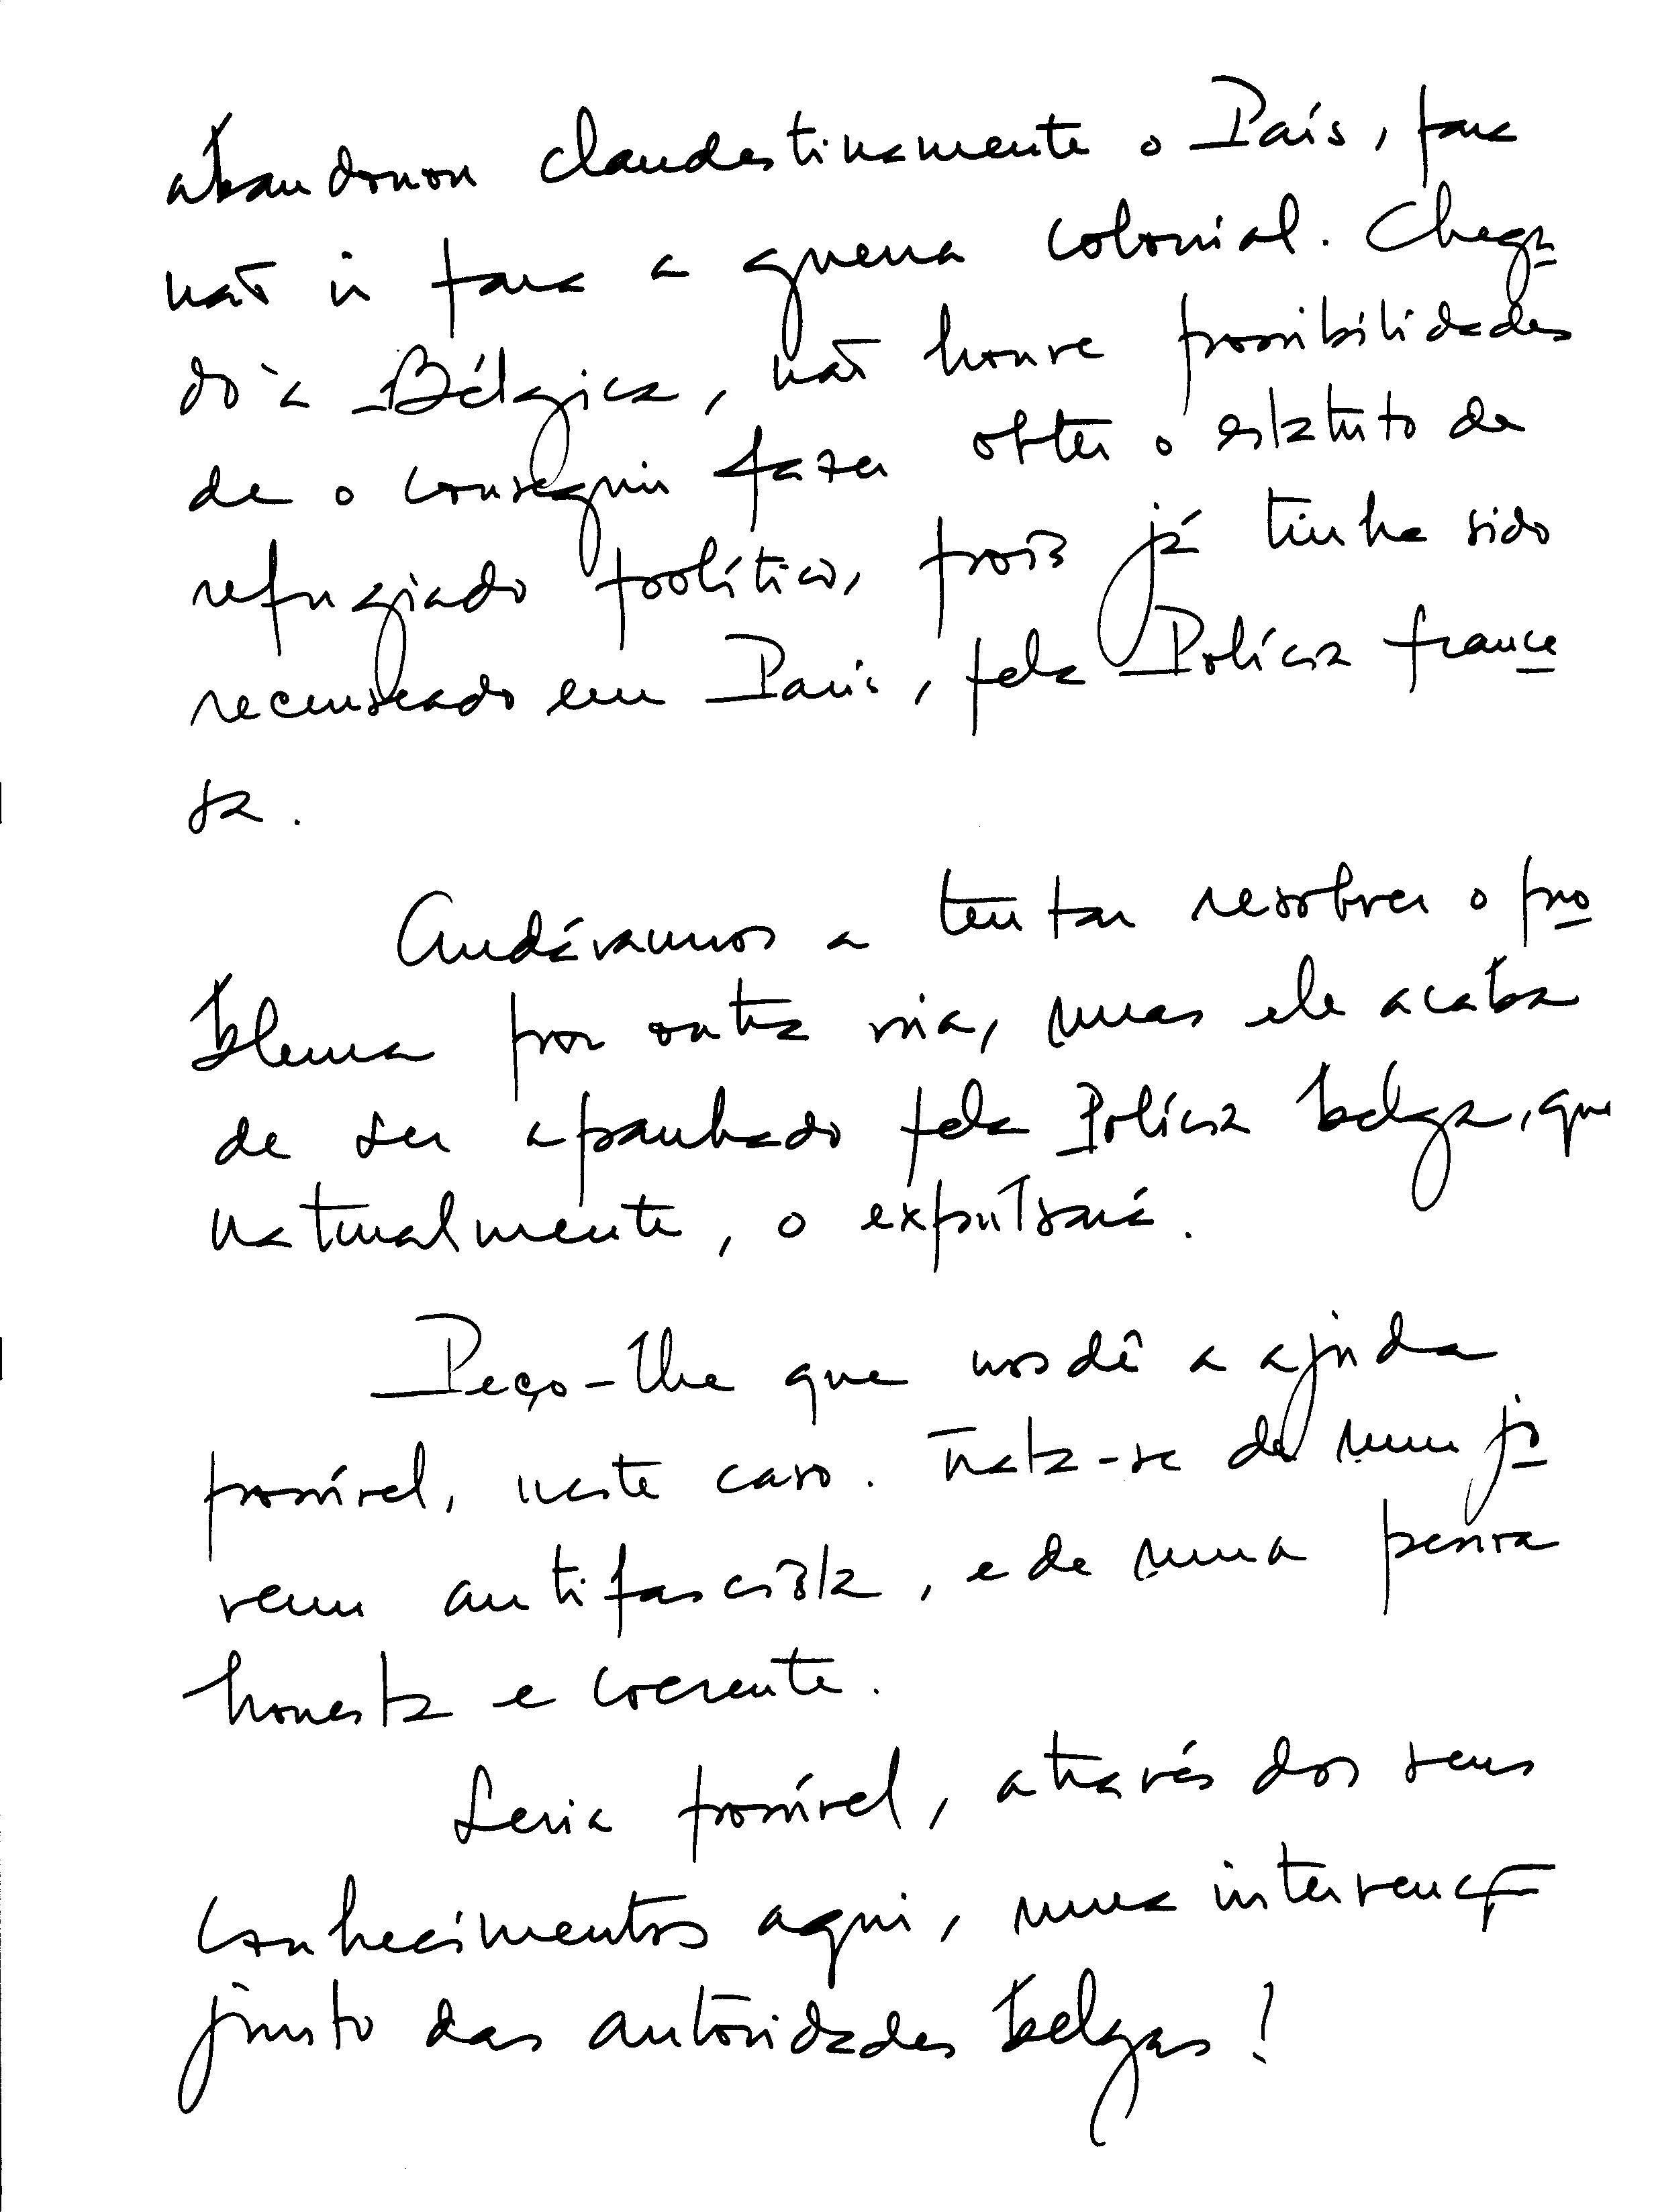 abandonou clandestinamente o País, para
não ir para a guerra colonial. Chega
do à Bélgica, não houve possibilidades
de o conseguir fazer obter o estatuto de
refugiado político, pois já tinha sido
recenseado em Paris, pela Polícia france
sa.
Andávamos a tentar resolver o pro
blema por outra via, mas ele acaba
de ser apanhado pela Polícia belga, que
naturalmente, o expulsará.
Peço-lhe que nos dê a ajuda
possível, neste caso. Trata-se de um jo
vem antifascista, e de uma pessoa
honesta e coerente.
Seria possível, através dos seus
conhecimentos aqui, uma intervenção
junto das autoridades belgas!